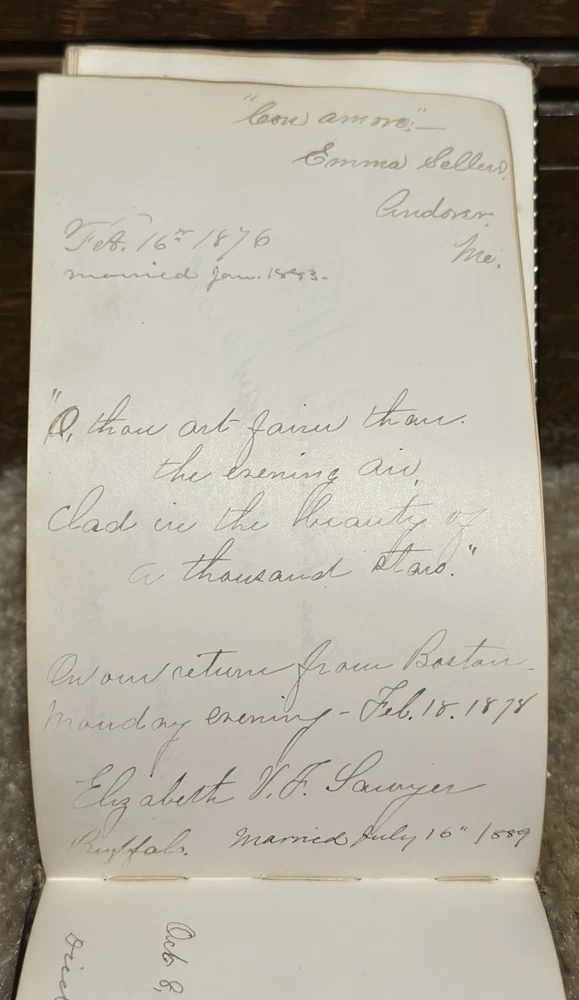 "Con amore."—
Emma Sellers,
Andover,
Me.
Feb. 16th 1876
married Jan. 1883.
"O, thou art fairer than
the evening air,
Clad in the beauty of
a thousand stars."
On our return from Boston.
Monday evening - Feb. 18. 1878
Elizabeth V. F. Sawyer
Buffalo. Married July 16" 1889
Oct. 8,